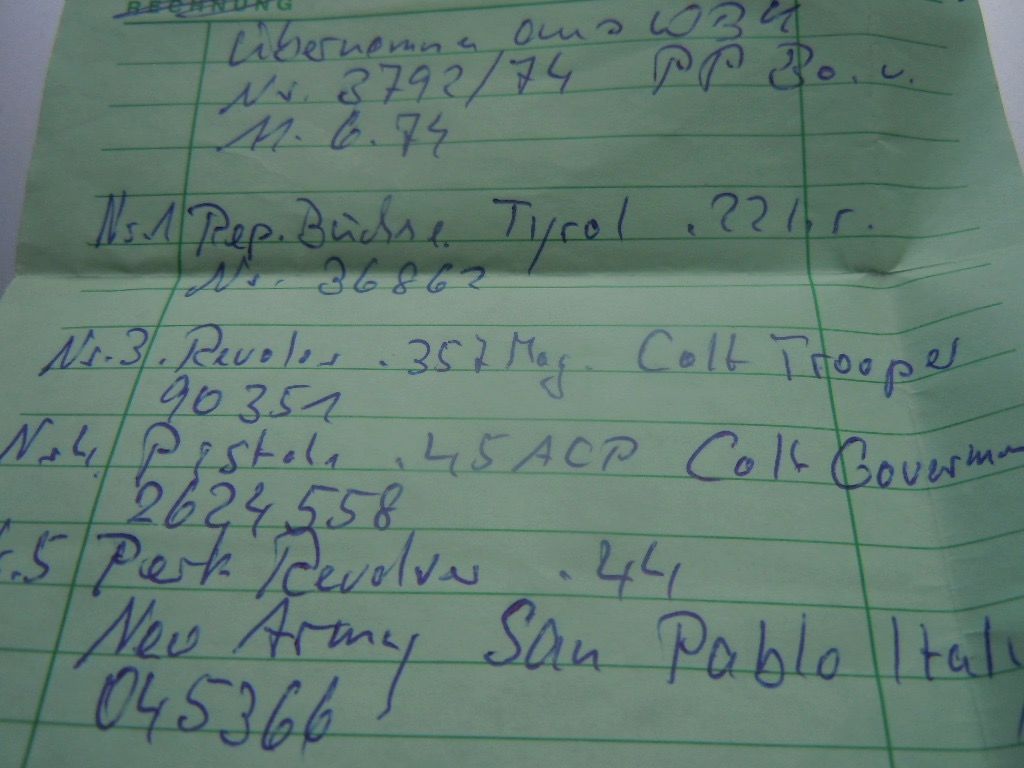 RECHNUNG
Übernomm aus WBK
Nr. 3792/74 PP Bo. v.
11. 6. 74
Nr.1 Rep. Büchse Tyrol .22 l. r.
Nr. 36862
Nr.3. Revolver .357 Mag. Colt Trooper
90351
Nr.4. Pistole .45 ACP Colt Goverman
2624558
r.5 Perk Revolver .44
New Army San Pablo Itali
045366